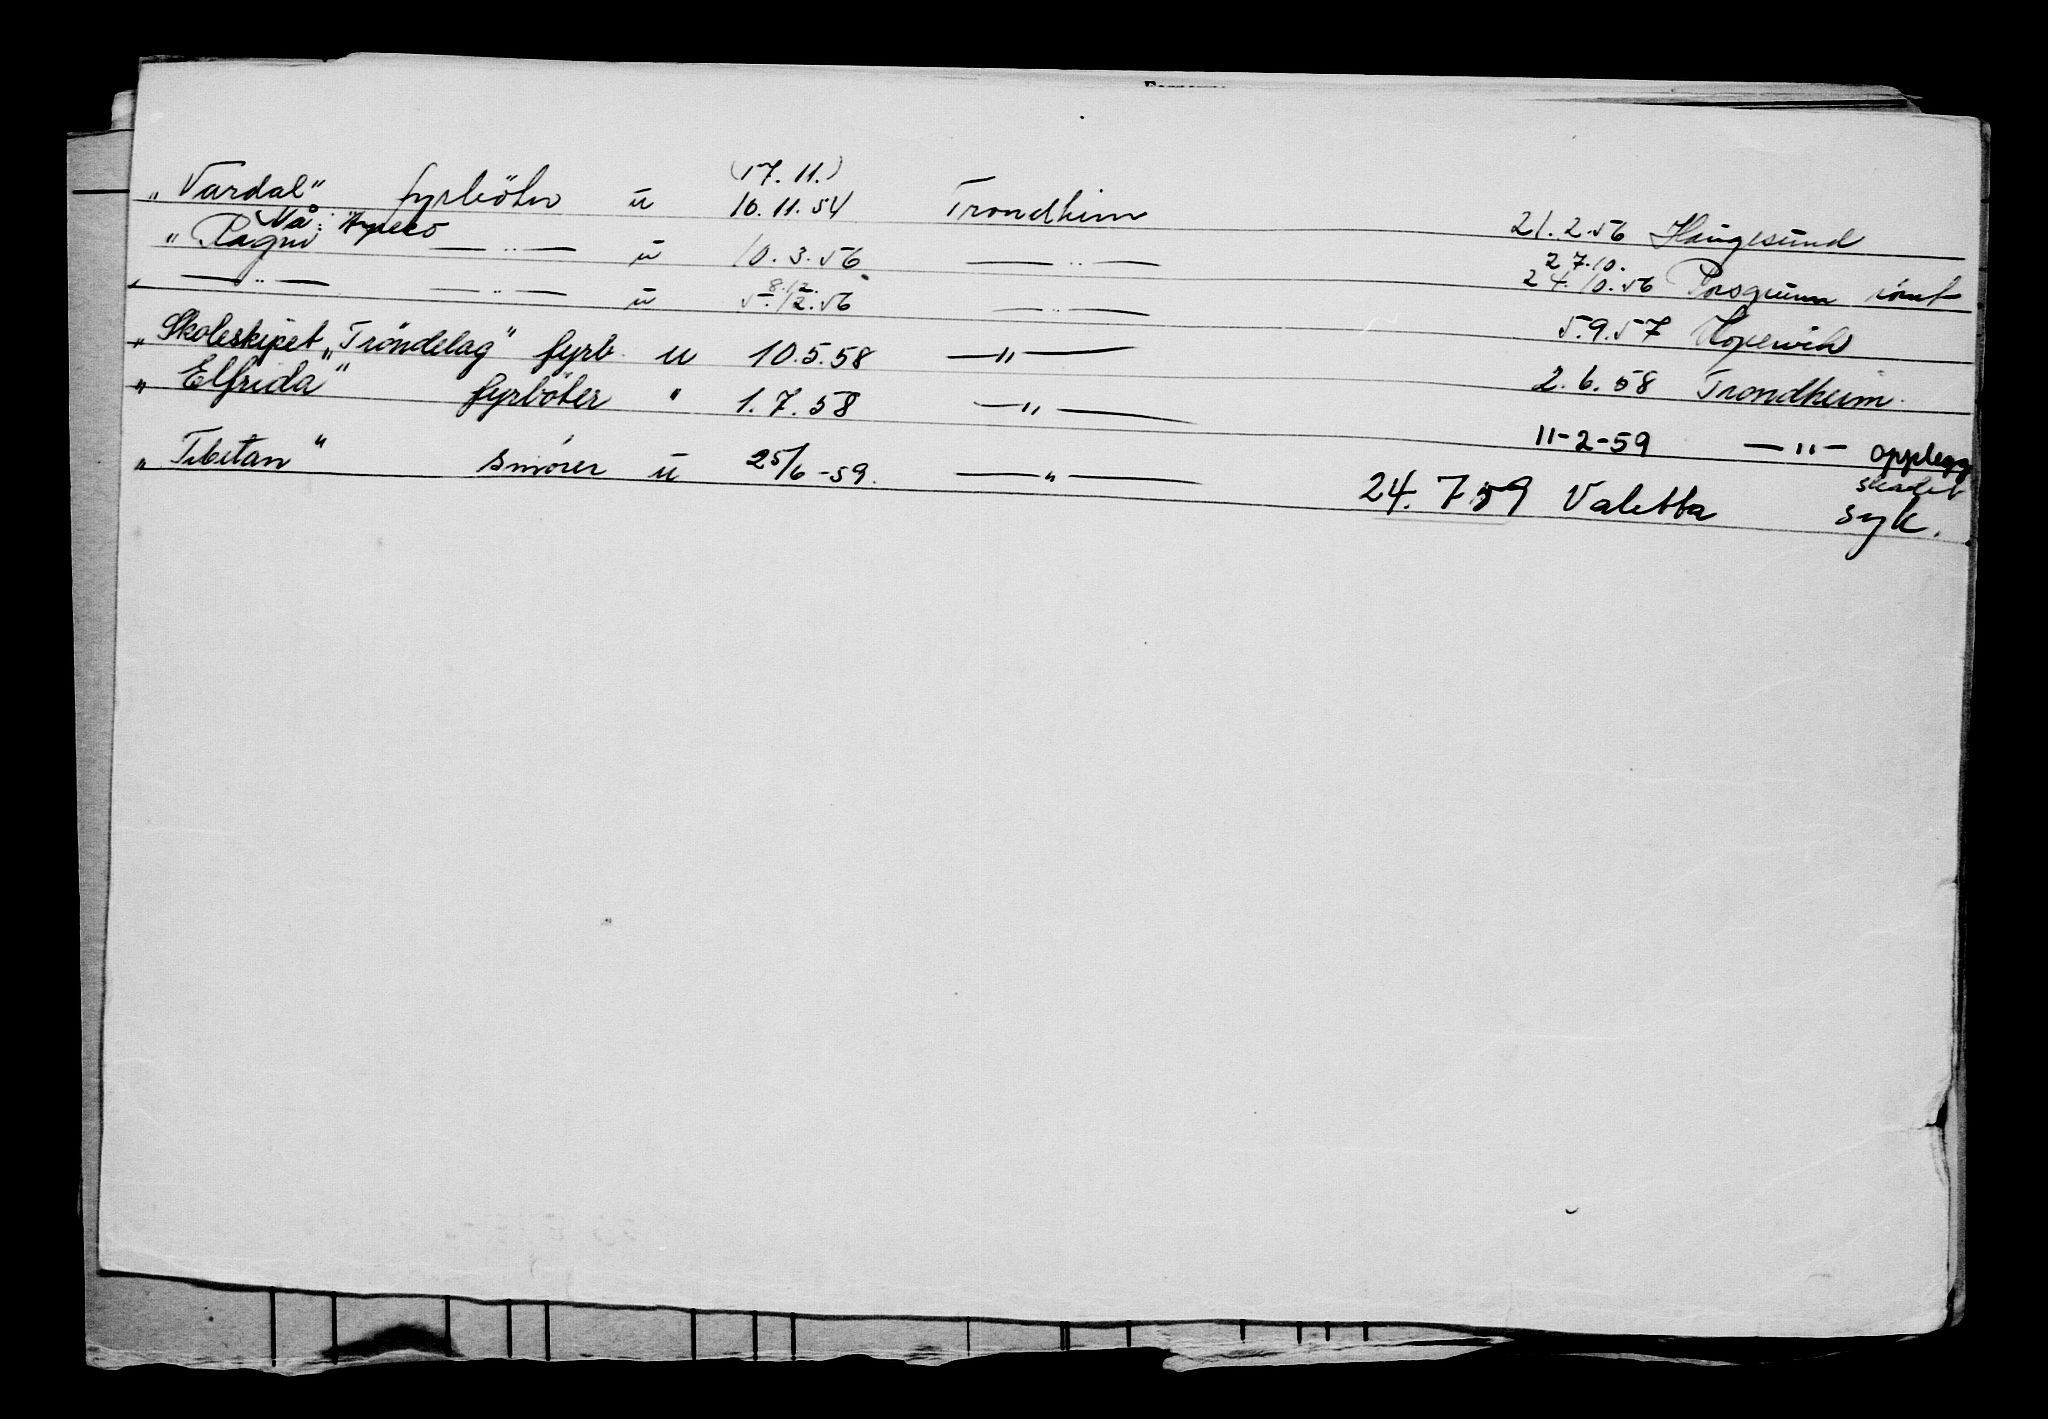 (17.11.)
„Vardal" fyrböter u 10.11.54 Trondheim 21.2.56 Haugesund
Nå:
„Ragni — „ — u 10.3.56 — „ — 27.10. 24.10.56 Porsgrunn rømt
„ — „ — — „ — u 8.12. 5.12.56 — „ — 5.9.57 Kopervik
„Skoleskipet „Tröndelag" fyrb. u 10.5.58 — „ — 2.6.58 Trondheim.
„Elfrida" fyrböter " 1.7.58 — „ — 11-2-59 — „ — opplegg
„Tibetan" smører u 25/6-59. — „ — 24.7.59 Valetta skadet syk.